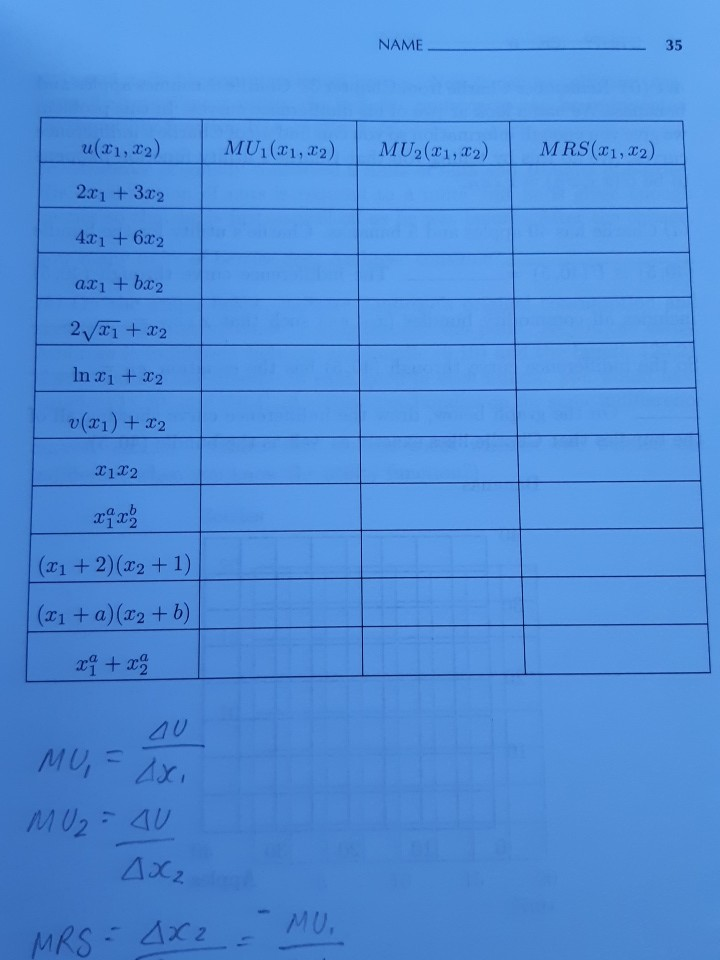 NAME ________ 35
u(x₁, x₂) MU₁(x₁, x₂) MU₂(x₁, x₂) MRS(x₁, x₂)
2x₁ + 3x₂
4x₁ + 6x₂
ax₁ + bx₂
2√x₁ + x₂
ln x₁ + x₂
v(x₁) + x₂
x₁x₂
x₁ᵃx₂ᵇ
(x₁ + 2)(x₂ + 1)
(x₁ + a)(x₂ + b)
x₁ᵃ + x₂ᵃ
MU₁ = ΔU / Δx₁
MU₂ = ΔU / Δx₂
MRS = Δx₂ = - MU₁